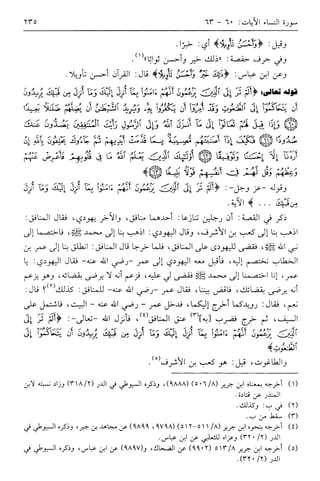 سورة النساء الآيات: ٦٠ - ٦٣ ٢٣٥
وقيل: ﴿وَأَحْسَنُ تَأْوِيلًا﴾ أي: خيرًا.
وفي حرف حفصة: «ذلك خير وأحسن ثوابًا»(١).
وعن ابن عباس: ﴿ذَٰلِكَ خَيْرٌ وَأَحْسَنُ تَأْوِيلًا﴾ قال: القرآن أحسن تأويلا.
قوله تعالى: ﴿أَلَمْ تَرَ إِلَى الَّذِينَ يَزْعُمُونَ أَنَّهُمْ آمَنُوا بِمَا أُنزِلَ إِلَيْكَ وَمَا أُنزِلَ مِن قَبْلِكَ يُرِيدُونَ
أَن يَتَحَاكَمُوا إِلَى الطَّاغُوتِ وَقَدْ أُمِرُوا أَن يَكْفُرُوا بِهِ وَيُرِيدُ الشَّيْطَانُ أَن يُضِلَّهُمْ ضَلَالًا بَعِيدًا
﴿٦٠﴾ وَإِذَا قِيلَ لَهُمْ تَعَالَوْا إِلَىٰ مَا أَنزَلَ اللَّهُ وَإِلَى الرَّسُولِ رَأَيْتَ الْمُنَافِقِينَ يَصُدُّونَ عَنكَ
صُدُودًا ﴿٦١﴾ فَكَيْفَ إِذَا أَصَابَتْهُم مُّصِيبَةٌ بِمَا قَدَّمَتْ أَيْدِيهِمْ ثُمَّ جَاءُوكَ يَحْلِفُونَ بِاللَّهِ إِنْ
أَرَدْنَا إِلَّا إِحْسَانًا وَتَوْفِيقًا ﴿٦٢﴾ أُولَٰئِكَ الَّذِينَ يَعْلَمُ اللَّهُ مَا فِي قُلُوبِهِمْ فَأَعْرِضْ عَنْهُمْ
وَعِظْهُمْ وَقُل لَّهُمْ فِي أَنفُسِهِمْ قَوْلًا بَلِيغًا ﴿٦٣﴾﴾
وقوله -عز وجل-: ﴿أَلَمْ تَرَ إِلَى الَّذِينَ يَزْعُمُونَ أَنَّهُمْ آمَنُوا بِمَا أُنزِلَ إِلَيْكَ وَمَا أُنزِلَ
مِن قَبْلِكَ ...﴾ الآية.
ذكر في القصة: أن رجلين تنازعا: أحدهما منافق، والآخر يهودي، فقال المنافق:
اذهب بنا إلى كعب بن الأشرف، وقال اليهودي: اذهب بنا إلى محمد ﷺ، فاختصما إلى
نبي الله ﷺ، فقضى لليهودي على المنافق، فلما خرجا قال المنافق: انطلق بنا إلى عمر بن
الخطاب نختصم إليه، فأقبل معه اليهودي إلى عمر -رضي الله عنه- فقال اليهودي: يا
عمر، إنا اختصمنا إلى محمد ﷺ فقضى لي عليه، فزعم أنه لا يرضى بقضائه، وهو يزعم
أنه يرضى بقضائك، فاقض بيننا، فقال عمر -رضي الله عنه- للمنافق: كذلك(٢) قال:
نعم، فقال: رويدكما أخرج إليكما، فدخل عمر -رضي الله عنه- البيت، فاشتمل على
السيف، ثم خرج فضرب [به](٣) عنق المنافق(٤)، فأنزل الله -تعالى-: ﴿أَلَمْ تَرَ إِلَى
الَّذِينَ يَزْعُمُونَ أَنَّهُمْ آمَنُوا بِمَا أُنزِلَ إِلَيْكَ وَمَا أُنزِلَ مِن قَبْلِكَ يُرِيدُونَ أَن يَتَحَاكَمُوا إِلَى
الطَّاغُوتِ﴾
والطاغوت، قيل: هو كعب بن الأشرف(٥).
(١) أخرجه بمعناه ابن جرير (٥٠٦/٨) (٩٨٨٨)، وذكره السيوطي في الدر (٣١٨/٢) وزاد نسبته لابن
المنذر عن قتادة.
(٢) في ب: وكذلك.
(٣) سقط من ب.
(٤) أخرجه بنحوه ابن جرير (٥١١/٨-٥١٢) (٩٧٩٨، ٩٨٩٩) عن مجاهد بن جبر، وذكره السيوطي في
الدر (٣٢٠/٢) وعزاه للثعلبي عن ابن عباس.
(٥) أخرجه ابن جرير ٥١٣/٨ (٩٩٠٢) عن الضحاك، و(٩٨٩٧) عن ابن عباس، وذكره السيوطي في
الدر (٣٢٠/٢).